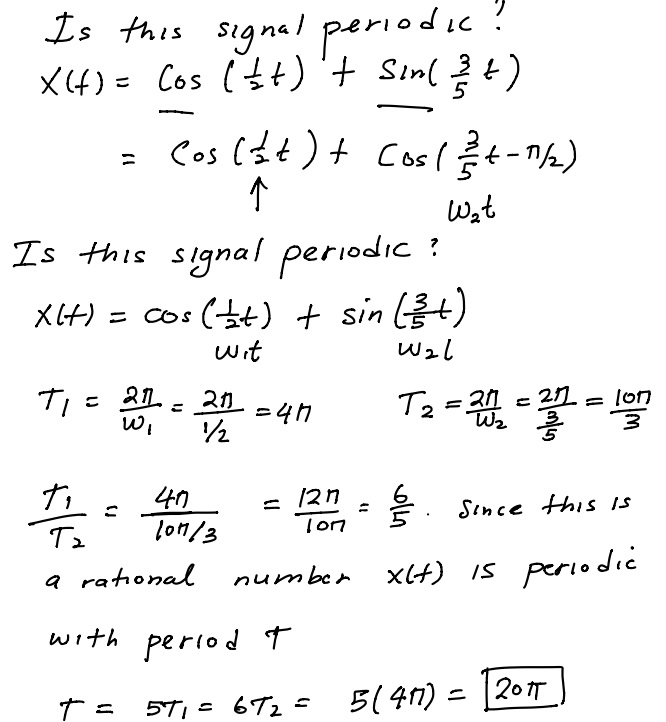 Is this signal periodic?
x(t) = cos(1/2 t) + sin(3/5 t)
= cos(1/2 t) + cos(3/5 t - π/2)
↑ ω₂t
Is this signal periodic?
x(t) = cos(1/2 t) + sin(3/5 t)
ω₁t ω₂t
T₁ = 2π/ω₁ = 2π/1/2 = 4π T₂ = 2π/ω₂ = 2π/3/5 = 10π/3
T₁/T₂ = 4π/10π/3 = 12π/10π = 6/5. Since this is
a rational number x(t) is periodic
with period T
T = 5T₁ = 6T₂ = 5(4π) = 20π